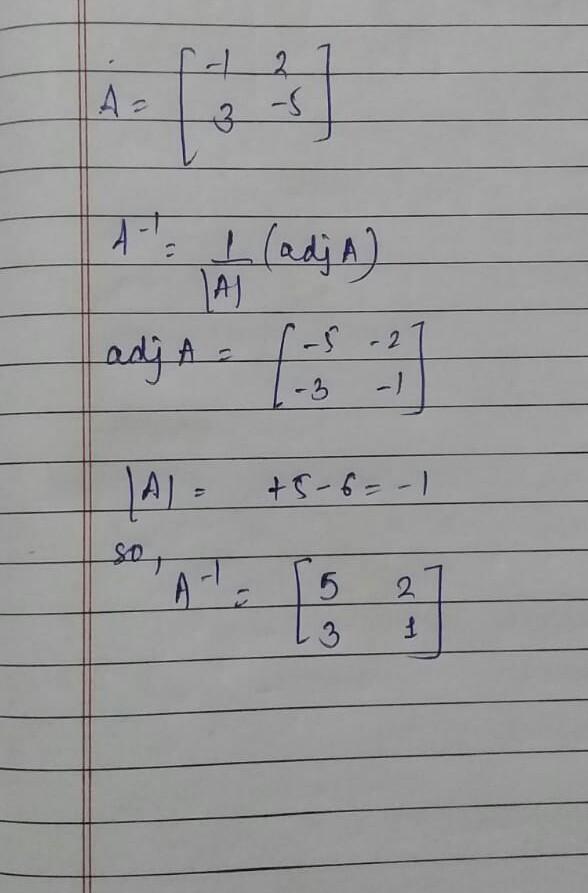 A = [ -1 2
3 -5 ]
A⁻¹ = 1/|A| (adj A)
adj A = [ -5 -2
-3 -1 ]
|A| = +5 - 6 = -1
so,
A⁻¹ = [ 5 2
3 1 ]